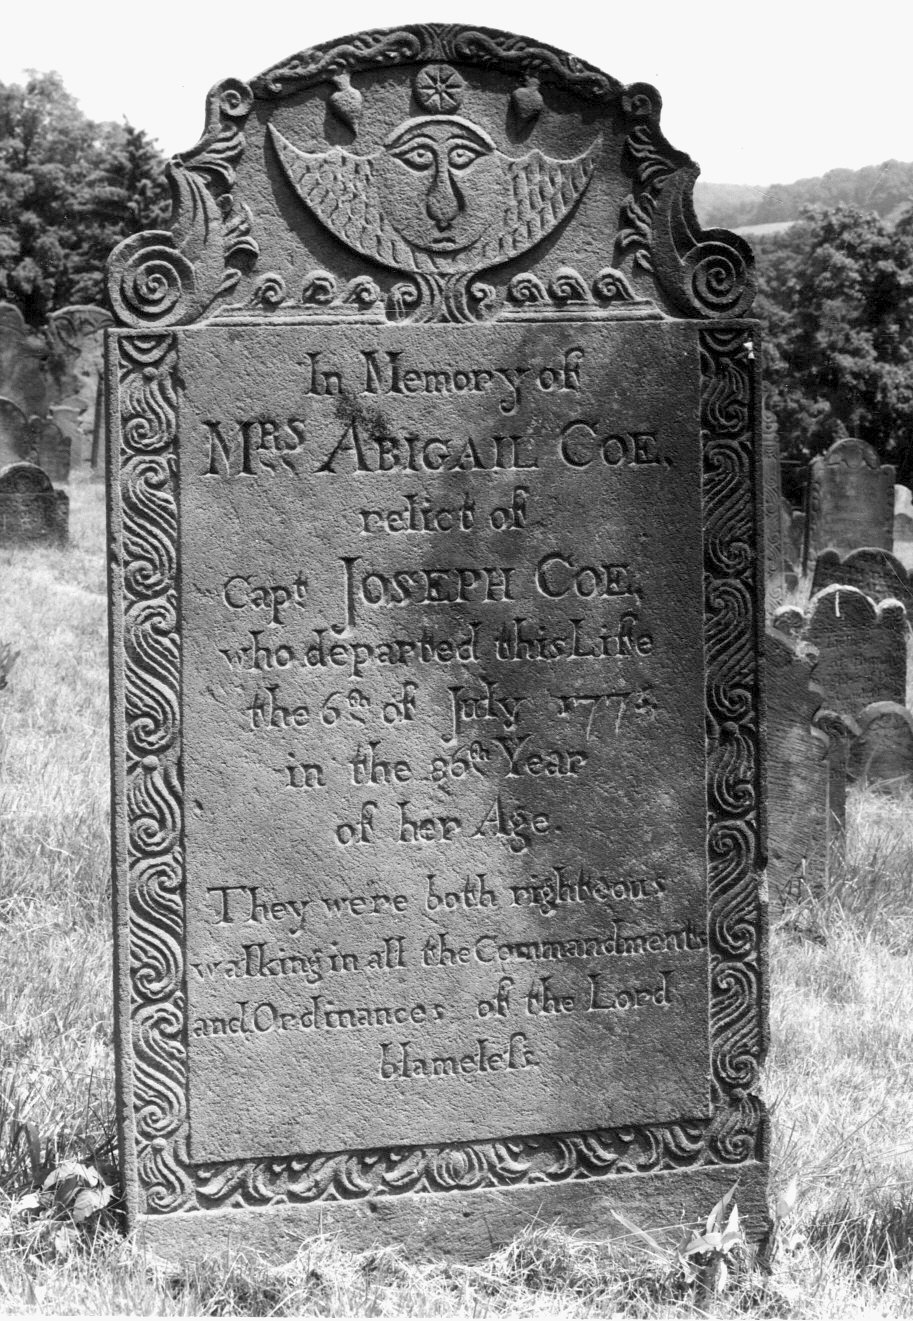 In Memory of
MRS ABIGAIL COE,
relict of
Capt JOSEPH COE,
who departed this Life
the 6th of July 1775
in the 86th Year
of her Age.
They were both righteous
walking in all the Commandments
and Ordinances of the Lord
blameleſs.